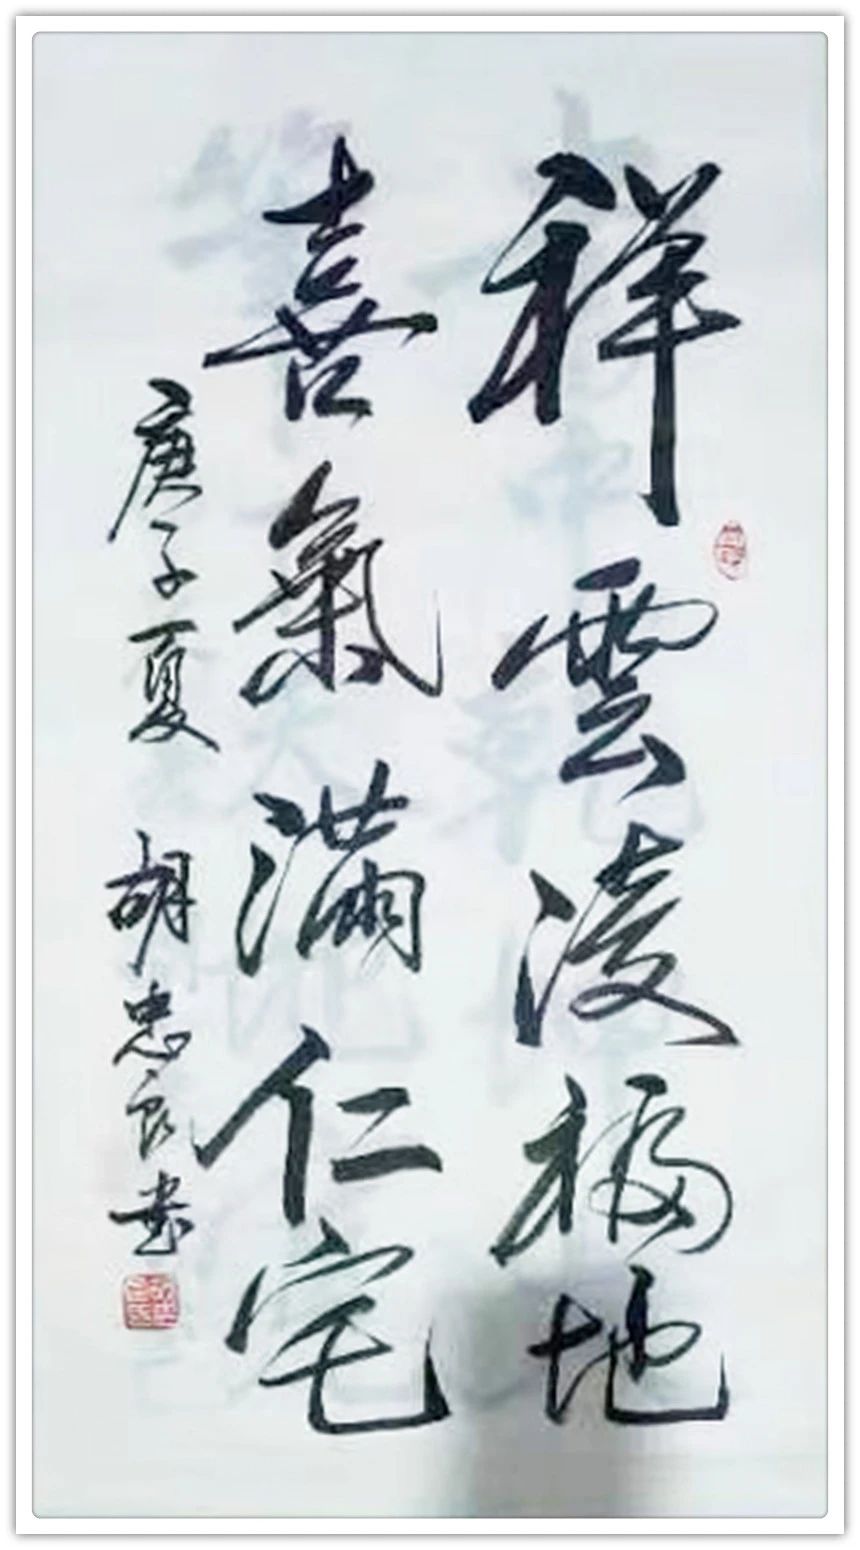 祥雲凌福地
喜氣滿仁宅
庚子夏 胡忠良書